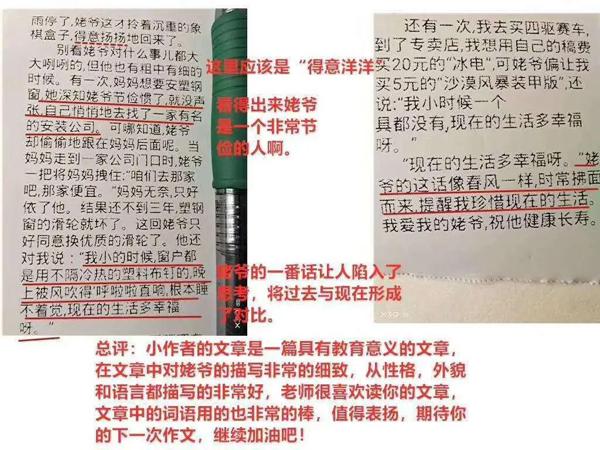 雨停了,姥爷这才拎着沉重的象
棋盒子,得意扬扬地回来了。
别看姥爷对什么事儿都大
大咧咧的,但他也有粗中有细的
时候。有一次,妈妈想要安塑钢
窗,她深知姥爷节俭惯了,就没声
张,自己悄悄地去找了一家有名
的安装公司。可哪知道,姥爷
却偷偷地跟在妈妈后面呢。当
妈妈走到一家公司门口时,姥爷
一把将妈妈拽住:“咱们去那家
吧,那家便宜。”妈妈无奈,只好
依了他。结果还不到三年,塑钢
窗的滑轮就坏了。这回姥爷只
好同意换优质的滑轮了。他还
对我说:“我小的时候,窗户都
是用不隔冷热的塑料布钉的,晚
上被风吹得呼啦啦直响,根本睡
不着觉,现在的生活多幸福
呀。”
这里应该是“得意洋洋
看得出来姥爷
是一个非常节
俭的人啊。
还有一次,我去买四驱赛车,
到了专卖店,我想用自己的稿费
买20元的“冰电”,可姥爷偏让我
买5元的“沙漠风暴装甲版”,还
说:“我小时候一个
具都没有,现在的生活多幸福
呀。”
“现在的生活多幸福呀。”姥
爷的这话像春风一样,时常拂面
而来,提醒我珍惜现在的生活。
我爱我的姥爷,祝他健康长寿。
姥爷的一番话让人陷入了
思考，将过去与现在形成
了对比。
总评：小作者的文章是一篇具有教育意义的文章，
在文章中对姥爷的描写非常的细致，从性格，外貌
和语言都描写的非常好，老师很喜欢读你的文章，
文章中的词语用的也非常的棒，值得表扬，期待你
的下一次作文，继续加油吧！